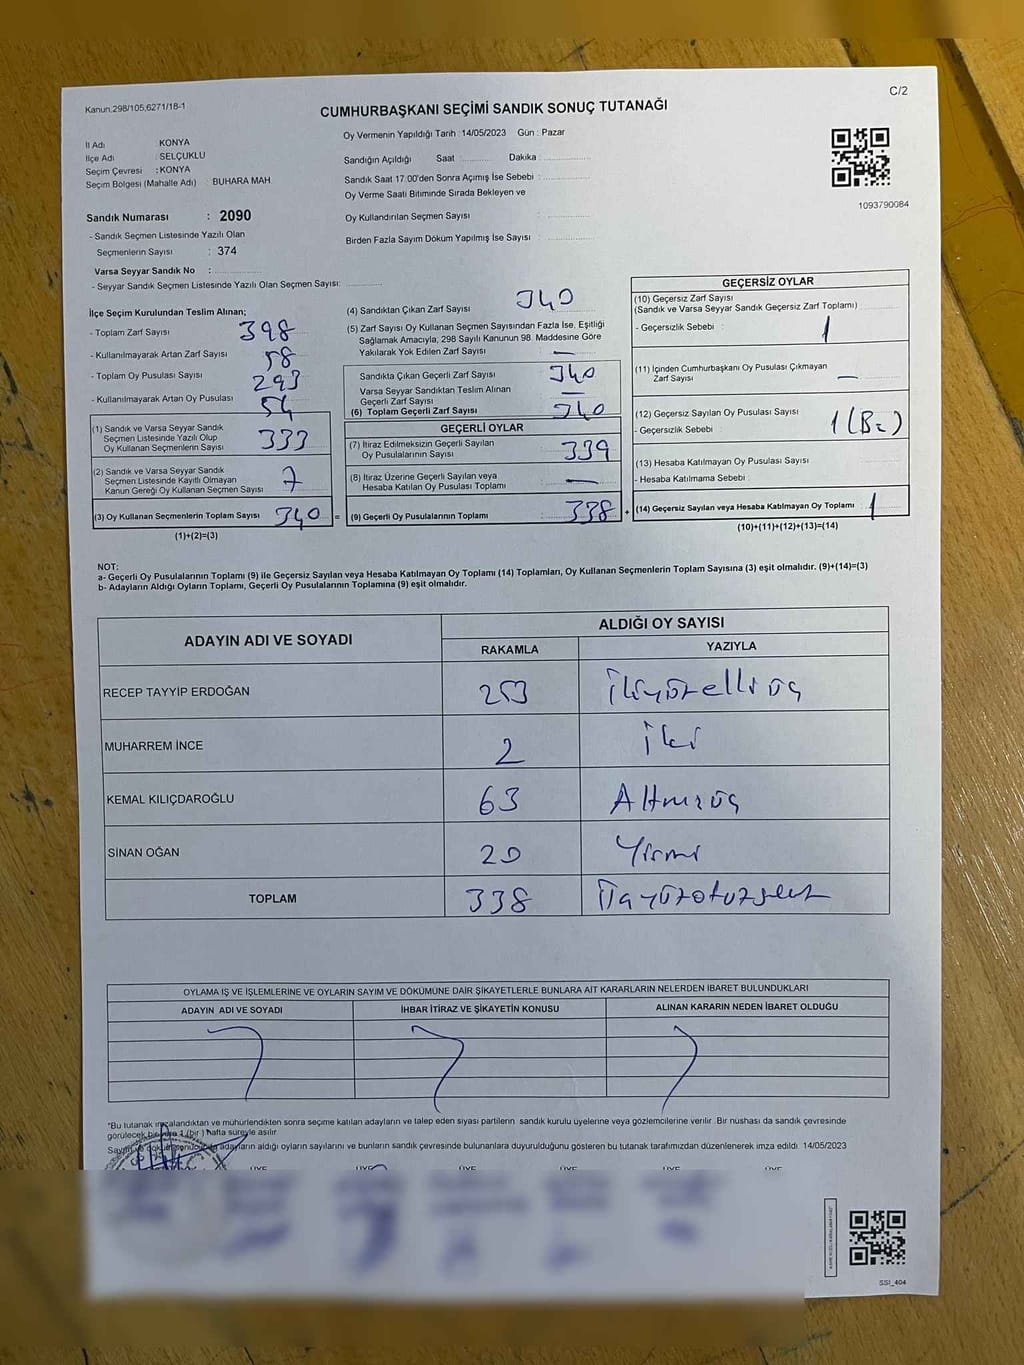 Kanun.298/105,6271/18-1
C/2
CUMHURBAŞKANI SEÇİMİ SANDIK SONUÇ TUTANAĞI
İl Adı KONYA
İlçe Adı : SELÇUKLU
Seçim Çevresi : KONYA
Seçim Bölgesi (Mahalle Adı) BUHARA MAH
Sandık Numarası : 2090
- Sandık Seçmen Listesinde Yazılı Olan
Seçmenlerin Sayısı : 374
Varsa Seyyar Sandık No :
- Seyyar Sandık Seçmen Listesinde Yazılı Olan Seçmen Sayısı:
Oy Vermenin Yapıldığı Tarih : 14/05/2023 Gün : Pazar
Sandığın Açıldığı Saat Dakika :
Sandık Saat 17:00'den Sonra Açımış İse Sebebi :
Oy Verme Saati Bitiminde Sırada Bekleyen ve
Oy Kullandırılan Seçmen Sayısı :
Birden Fazla Sayım Döküm Yapılmış İse Sayısı :
1093790084
İlçe Seçim Kurulundan Teslim Alınan;
- Toplam Zarf Sayısı 398
- Kullanılmayarak Artan Zarf Sayısı 58
- Toplam Oy Pusulası Sayısı 293
- Kullanılmayarak Artan Oy Pusulası 54
(1) Sandık ve Varsa Seyyar Sandık
Seçmen Listesinde Yazılı Olup
Oy Kullanan Seçmenlerin Sayısı 333
(2) Sandık ve Varsa Seyyar Sandık
Seçmen Listesinde Kayıtlı Olmayan
Kanun Gereği Oy Kullanan Seçmen Sayısı 7
(3) Oy Kullanan Seçmenlerin Toplam Sayısı 340 =
(1)+(2)=(3)
(4) Sandıktan Çıkan Zarf Sayısı 340
(5) Zarf Sayısı Oy Kullanan Seçmen Sayısından Fazla İse, Eşitliği
Sağlamak Amacıyla, 298 Sayılı Kanunun 98. Maddesine Göre
Yakılarak Yok Edilen Zarf Sayısı —
Sandıkta Çıkan Geçerli Zarf Sayısı 340
Varsa Seyyar Sandıktan Teslim Alınan
Geçerli Zarf Sayısı —
(6) Toplam Geçerli Zarf Sayısı 340
GEÇERLİ OYLAR
(7) İtiraz Edilmeksizin Geçerli Sayılan
Oy Pusulalarının Sayısı 339
(8) İtiraz Üzerine Geçerli Sayılan veya
Hesaba Katılan Oy Pusulası Toplamı —
(9) Geçerli Oy Pusulalarının Toplamı 338 +
GEÇERSİZ OYLAR
(10) Geçersiz Zarf Sayısı
(Sandık ve Varsa Seyyar Sandık Geçersiz Zarf Toplamı)
- Geçersizlik Sebebi : 1
(11) İçinden Cumhurbaşkanı Oy Pusulası Çıkmayan
Zarf Sayısı —
(12) Geçersiz Sayılan Oy Pusulası Sayısı
- Geçersizlik Sebebi : 1
(13) Hesaba Katılmayan Oy Pusulası Sayısı
- Hesaba Katılmama Sebebi :
(14) Geçersiz Sayılan veya Hesaba Katılmayan Oy Toplamı : 1
(10)+(11)+(12)+(13)=(14)
NOT:
a- Geçerli Oy Pusulalarının Toplamı (9) ile Geçersiz Sayılan veya Hesaba Katılmayan Oy Toplamı (14) Toplamları, Oy Kullanan Seçmenlerin Toplam Sayısına (3) eşit olmalıdır. (9)+(14)=(3)
b- Adayların Aldığı Oyların Toplamı, Geçerli Oy Pusulalarının Toplamına (9) eşit olmalıdır.
ADAYIN ADI VE SOYADI ALDIĞI OY SAYISI
RAKAMLA YAZIYLA
RECEP TAYYİP ERDOĞAN 253 İkiyüzelliüç
MUHARREM İNCE 2 İki
KEMAL KILIÇDAROĞLU 63 Altmışüç
SİNAN OĞAN 20 Yirmi
TOPLAM 338 Üçyüzotuzsekiz
OYLAMA İŞ VE İŞLEMLERİNE VE OYLARIN SAYIM VE DÖKÜMÜNE DAİR ŞİKAYETLERLE BUNLARA AİT KARARLARIN NELERDEN İBARET BULUNDUKLARI
ADAYIN ADI VE SOYADI İHBAR İTİRAZ VE ŞİKAYETİN KONUSU ALINAN KARARIN NEDEN İBARET OLDUĞU
"Bu tutanak imzalandıktan ve mühürlendikten sonra seçime katılan adayların ve talep eden siyasi partilerin sandık kurulu üyelerine veya gözlemcilerine verilir. Bir nüshası da sandık çevresinde
görülecek bir yere 1 (bir) hafta süreyle asılır
adayların aldığı oyların sayılarını ve bunların sandık çevresinde bulunanlara duyurulduğunu gösteren bu tutanak tarafımızdan düzenlenerek imza edildi. 14/05/2023
ÜYE ÜYE ÜYE ÜYE ÜYE ÜYE
SSİ_404